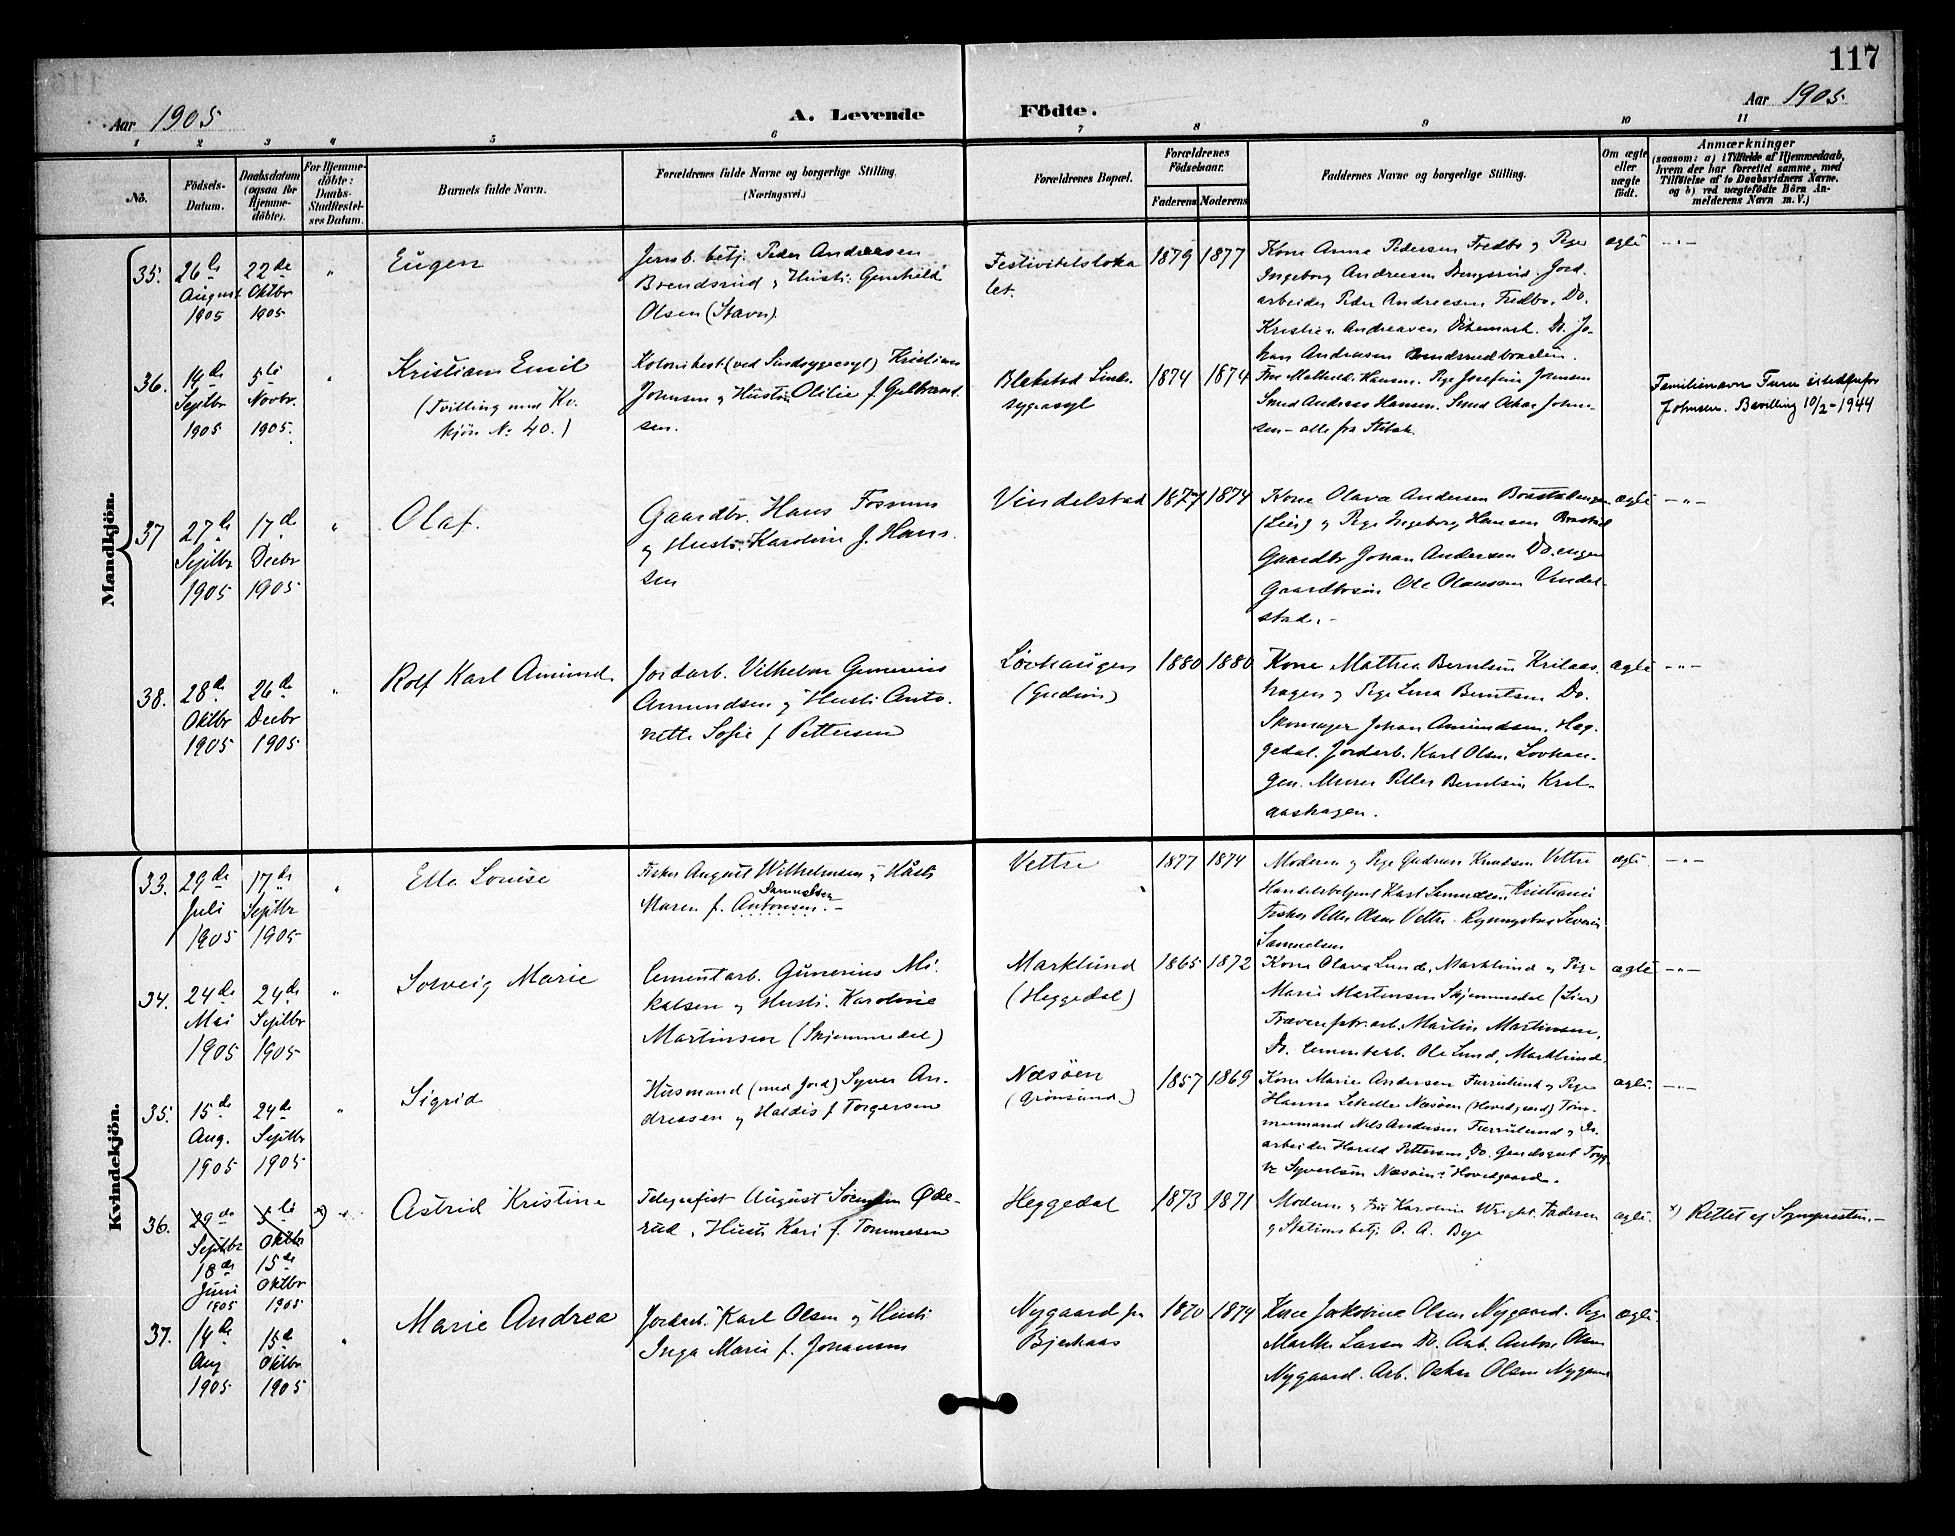 117
Aar 1905
A. Levende Födte.
Aar 1905.
1 2 3 4 5 6 7 8 9 10 11
No.
Födsels-
Datum.
Daabsdatum
(ogsaa for
Hjemme-
döbte).
For Hjemme-
döbte:
Daabs-
Stadfæstel-
ses Datum.
Barnets fulde Navn.
Forældrenes fulde Navne og borgerlige Stilling.
(Næringsvei.)
Forældrenes Bopæl.
Forældrenes
Födselsaar.
Faderens Moderens
Faddernes Navne og borgerlige Stilling.
Om ægte
eller
uægte
födt.
Anmærkninger
(saasom: a) i Tilfælde af Hjemmedaab,
hvem der har forrettet samme, med
Tilföielse af to Daabsvidners Navne.
og b) ved uægtefödte Börn An-
melderens Navn m. V.)
Mandkjön.
35.
26de
August
1905
22de
Oktbr
1905
"
Eugen
Jernb. betj. Peder Andreesen
Brendsrud og Hustr: Gunhild
Olsen (Stavn).
Festivitetsloka
let.
1879 1877
Kone Anna Pedersen Fredbo og Pige
Ingeborg Andreesen Jord
arbeider Peder Andreesen Fredbo. Do.
Kristian Andreasen Dikemark. Do. Jo-
han Andreesen Brendsrudbraaten.
ægte
—"—
36.
14de
Septbr
1905
5te
Novbr.
1905.
"
Kristian Emil
(Tvilling med Kv.
kjön No 40.)
(ved Sindsygeasyl) Kristian
Johnsen og Hustru Otilie f. Gulbrand.
sen.
Blakstad Sind.
sygeasyl
1874 1874
Fru Mathilde Hansen. Pige Josefine Johnsen
Smed Andreas Hansen. Smed Oskar John-
sen – alle fra
Familienavn Furu istedetfor
Johnsen. Bevilling 10/2-1944
37
27de
Septbr
1905
17de
Decbr
1905
"
Olaf.
Gaardbr. Hans Fossum
og Hustr. Karoline f. Han.
sen
Vindelstad
1877 1874
Kone Olava Andersen
(Lier) og Pige Ingeborg Hansen
Gaardbr Johan Andersen Do.
Gaardbrsön Ole Olaussen Vindel-
stad. –
ægte
—"—
38.
28de
Oktbr
1905
26de
Decbr
1905
"
Rolf Karl Amund.
Jordarb. Vilhelm Gunerius
Amundsen og Hustr. Anto.
nette Sofie f Pettersen
Lövhaugen
(Gudim)
1880 1880
Kone Mathea Berntsen Krilaas.
hagen og Pige Lina Berntsen Do.
Skomager Johan Amundsen. Heg-
gedal. Jordarb. Karl Olsen Lövhau-
gen. Murer Petter Berntsen Kril-
aashagen.
ægte
—"—
Kvindekjön.
33.
29de
Juli
1905
17de
Septbr
1905
"
Elle Louise
Fisker August Wilhelmsen og Hustr
Samuelsen
Maren f. Antonsen. –
Vettre
1877 1874
Moderen og Pige Gudrun Knudsen Vettre
Handelsbetjent Karl Kristiania
Fisker Petter Olsen Vettre. Severin
Samuelsen
ægte.
—"—
34.
24de
Mai
1905
24de
Septbr
1905
"
Solveig Marie
Cementarb. Gunerius Mi.
kalsen og Hustr. Karoline
Martinsen (Skjemmedal)
Marklund
(Heggedal)
1865 1872
Kone Olava Lund, Marklund og Pige
Marie Martensen Skjemmedal (Lier)
Martin Martinsen,
Do. Cementarb. Ole Lund, Marklund.
ægte
—"—
35.
15de
Aug.
1905
24de
Septbr
1905
"
Sigrid
Husmand (med Jord) Syver An.
dreasen og Haldis f Torgersen
Næsöen
(Grönsund)
1857 1869
Kone Marie Andersen Furrulund og Pige
Hanna Næsöen (Hovedgaard) Töm-
mermand Nils Andersen Furrulund og Do.
arbeider Harald Pettersen, Do. Trygg-
ve Syvertsen Næsöens Hovedgaard.
ægte.
—"—
36.
29de
Septbr
18de
Juni
1905
5te
Oktbr
15de
Oktbr
1905
x) "
Astrid Kristine
Telegrafist August Øde-
rud. Hustr Kari f. Tommesen
Heggedal
1873 1871
Moderen og Fru Karoline Wright. Faderen
og Stationsbetj. O. A. Bye
ægte.
x) Rettet af Sognepresten. –
37.
14de
Aug
1905
15de
Oktbr
1905
"
Marie Andrea
Jordarb. Karl Olsen og Hustr
Inga Marie f. Johansen
Nygaard fr
Bjerkaas
1870 1874
Kone Jakobine Olsen Nygaard. Pige
Marthe Larsen Do. Arb. Anton Olsen
Nygaard. Arb. Oskar Olsen Nygaard
ægte.